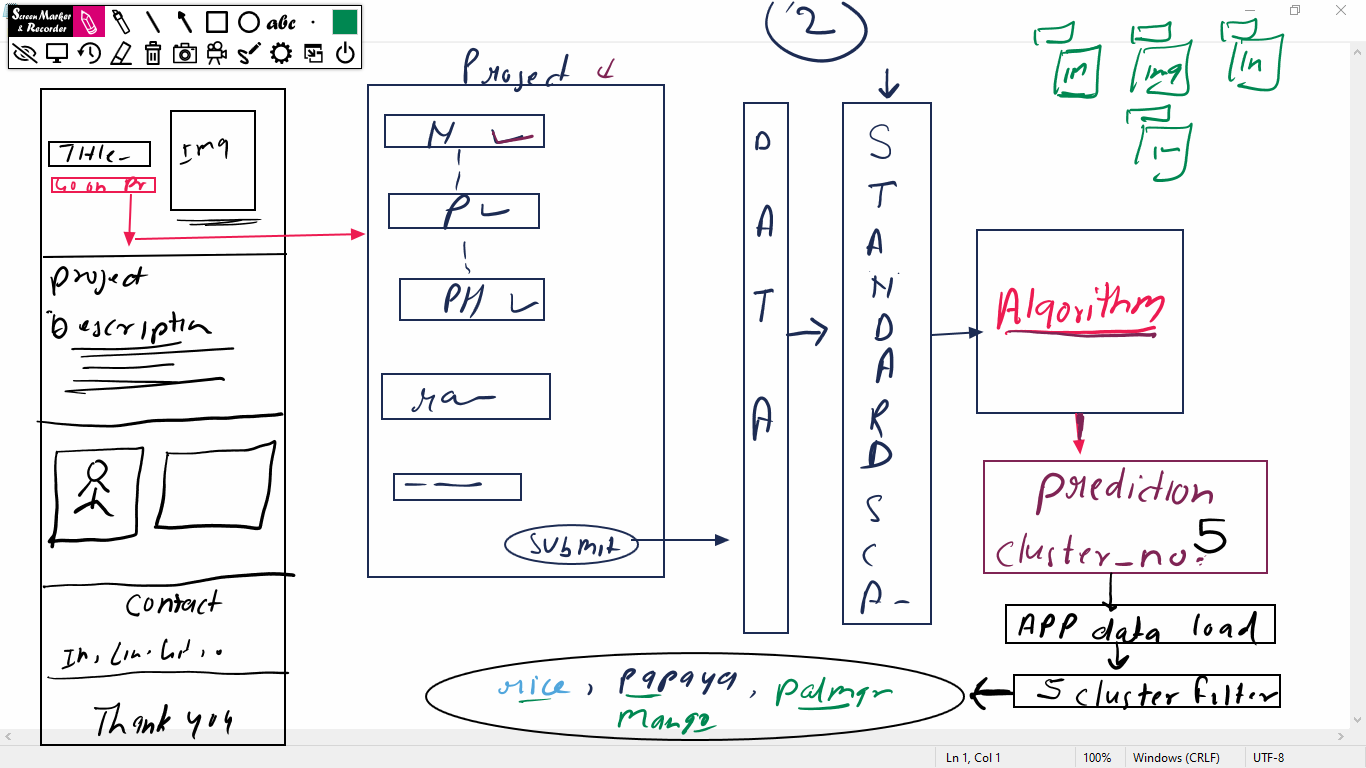 Screen Marker
& Recorder
abc
2
Title
img
Go on Pr
Project
Description
Contact
In, Lin.
Thank you
Project
N
P
PH
ra
Submit
DATA
STANDARD SCA
in
img
in
Algorithm
Prediction
cluster_no: 5
APP data load
5 cluster Filter
rice, papaya, palmgr
Mango
Ln 1, Col 1
100%
Windows (CRLF)
UTF-8